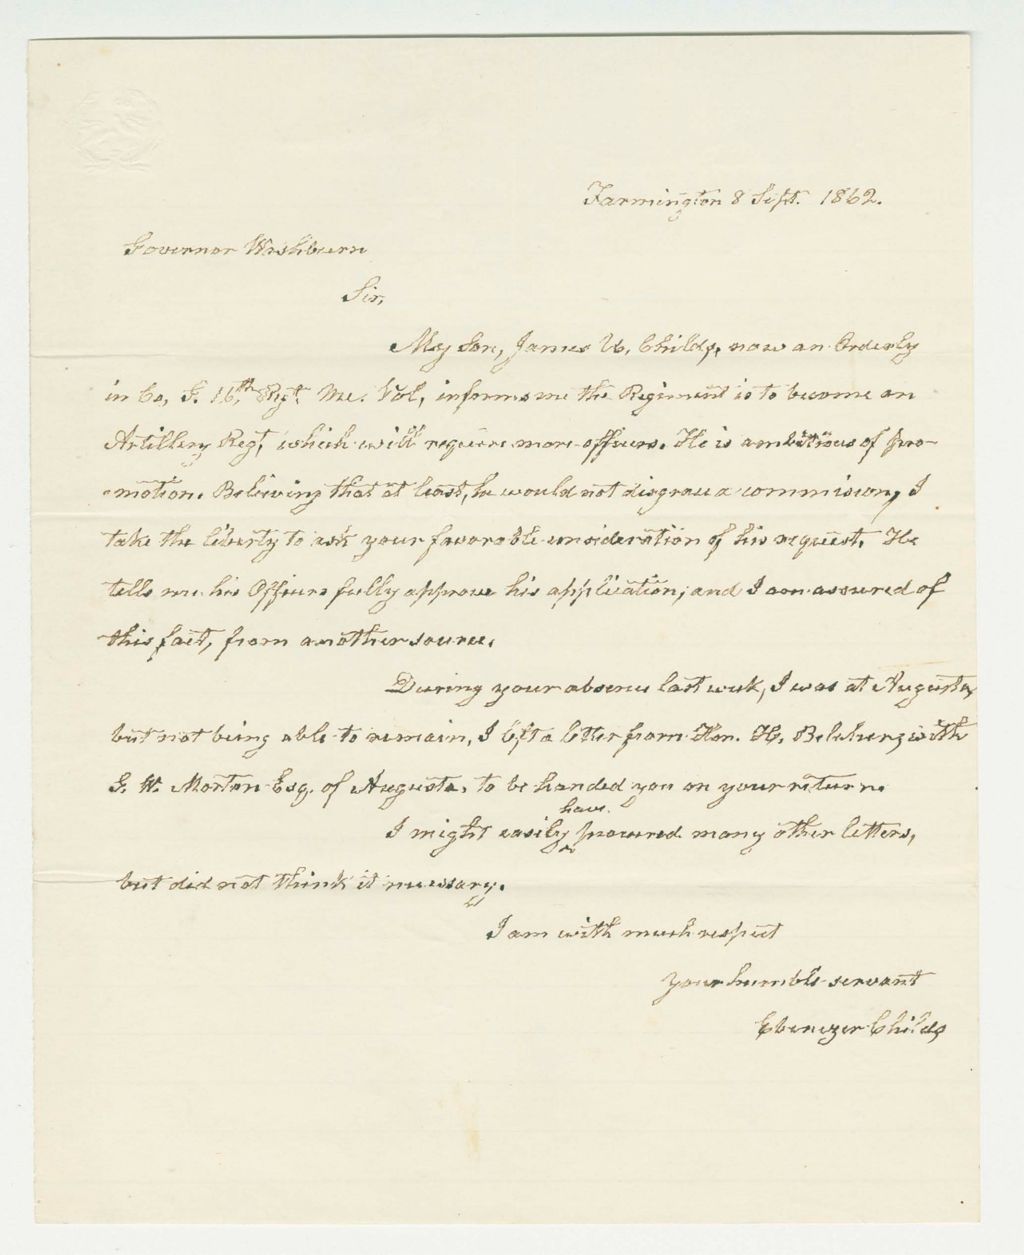 Farmington 8 Sept. 1862.
Governor Washburn
Sir,
My son, James U. Childs, now an Orderly
in Co, S. Regt. Me. Vol, informs me the Regiment is to become an
Artillery Regt, which will require more officers. He is ambitious of pro-
-motion. Believing that at least, he would not disgrace a commission, I
take the liberty to ask your favorable consideration of his request. He
tells me his Officers fully approve his application; and I am assured of
this fact, from another source.
During your absence last week, I was at Augusta,
but not being able to remain, I left a letter from Hon. H. Belcher, with
S. W. Morton Esq. of Augusta, to be handed you on your return.
I might easily have procured many other letters,
but did not think it necessary.
I am with much respect
your humble servant
Ebenezer Childs